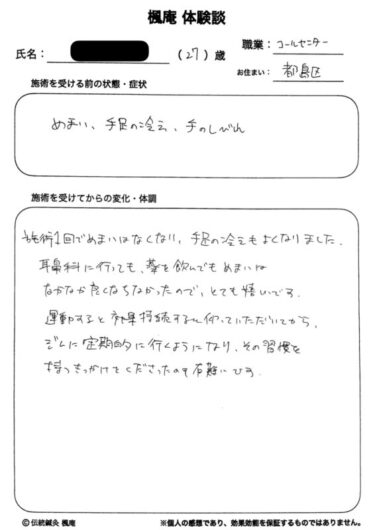 楓庵 体験談
氏名： （27）歳
職業： コールセンター
お住まい： 都島区
施術を受ける前の状態・症状
めまい、手足の冷え、手のしびれ
施術を受けてからの変化・体調
施術1回でめまいはなくなり、手足の冷えもよくなりました。
耳鼻科に行っても、薬を飲んでもめまいは
なかなか良くならなかったので、とても嬉しいです。
運動すると効果持続すると仰っていただいてから、
ジムに定期的に行くようになり、その習慣を
持つきっかけてくださったのも有難いです。
© 伝統鍼灸 楓庵
※個人の感想であり、効果効能を保証するものではありません。